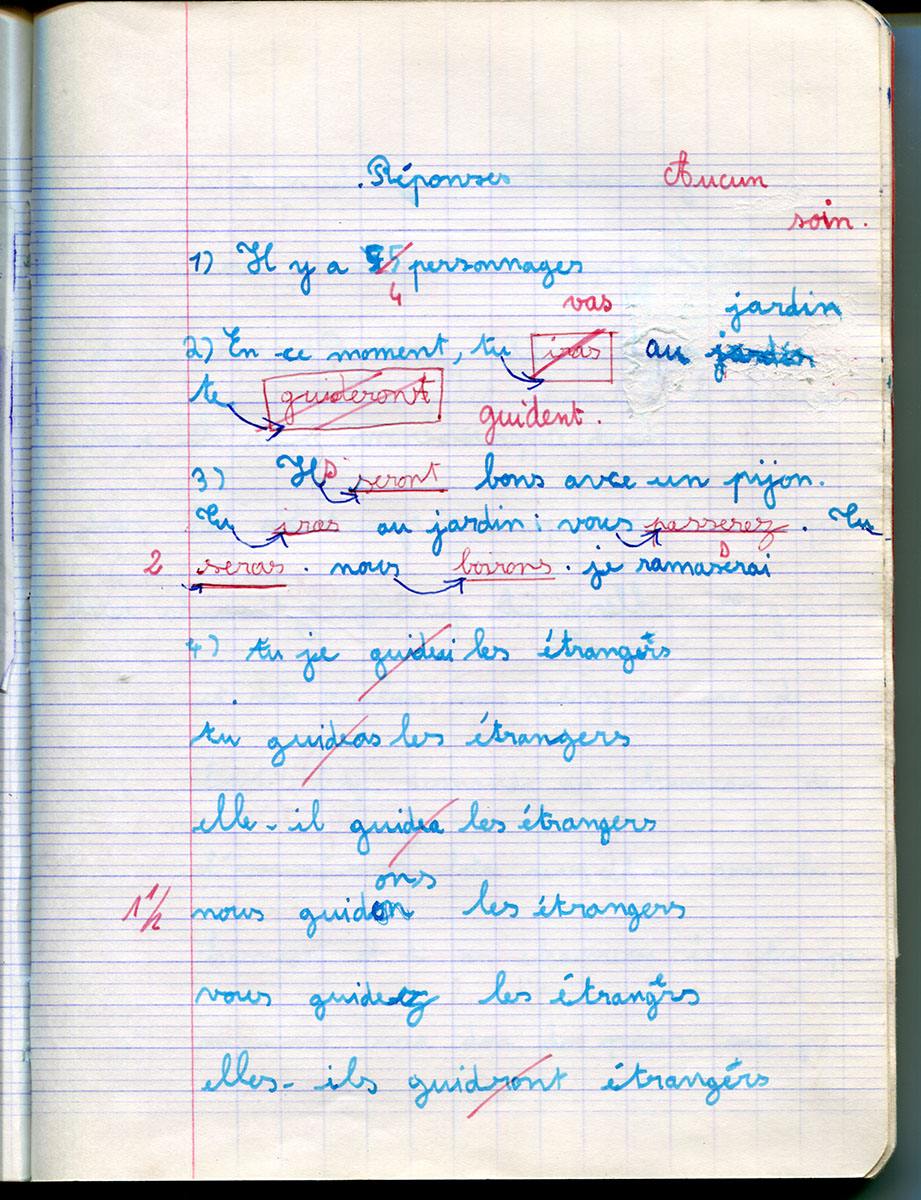 Réponses Aucun
soin.
1) Il y a 5 personnages
4
vas jardin
2) En ce moment, tu iras au jardin
te guideront guident.
3) Ils seront bons avce un pijon.
Tu iras au jardin : vous passerez. Tu
2 seras. nous boirons. je ramasserai
4) tu je guideai les étrangers
tu guideas les étrangers
elle - il guidea les étrangers
ons
1 1/2 nous guidon les étrangers
vous guidez les étrangers
elles - ils guidront étrangers